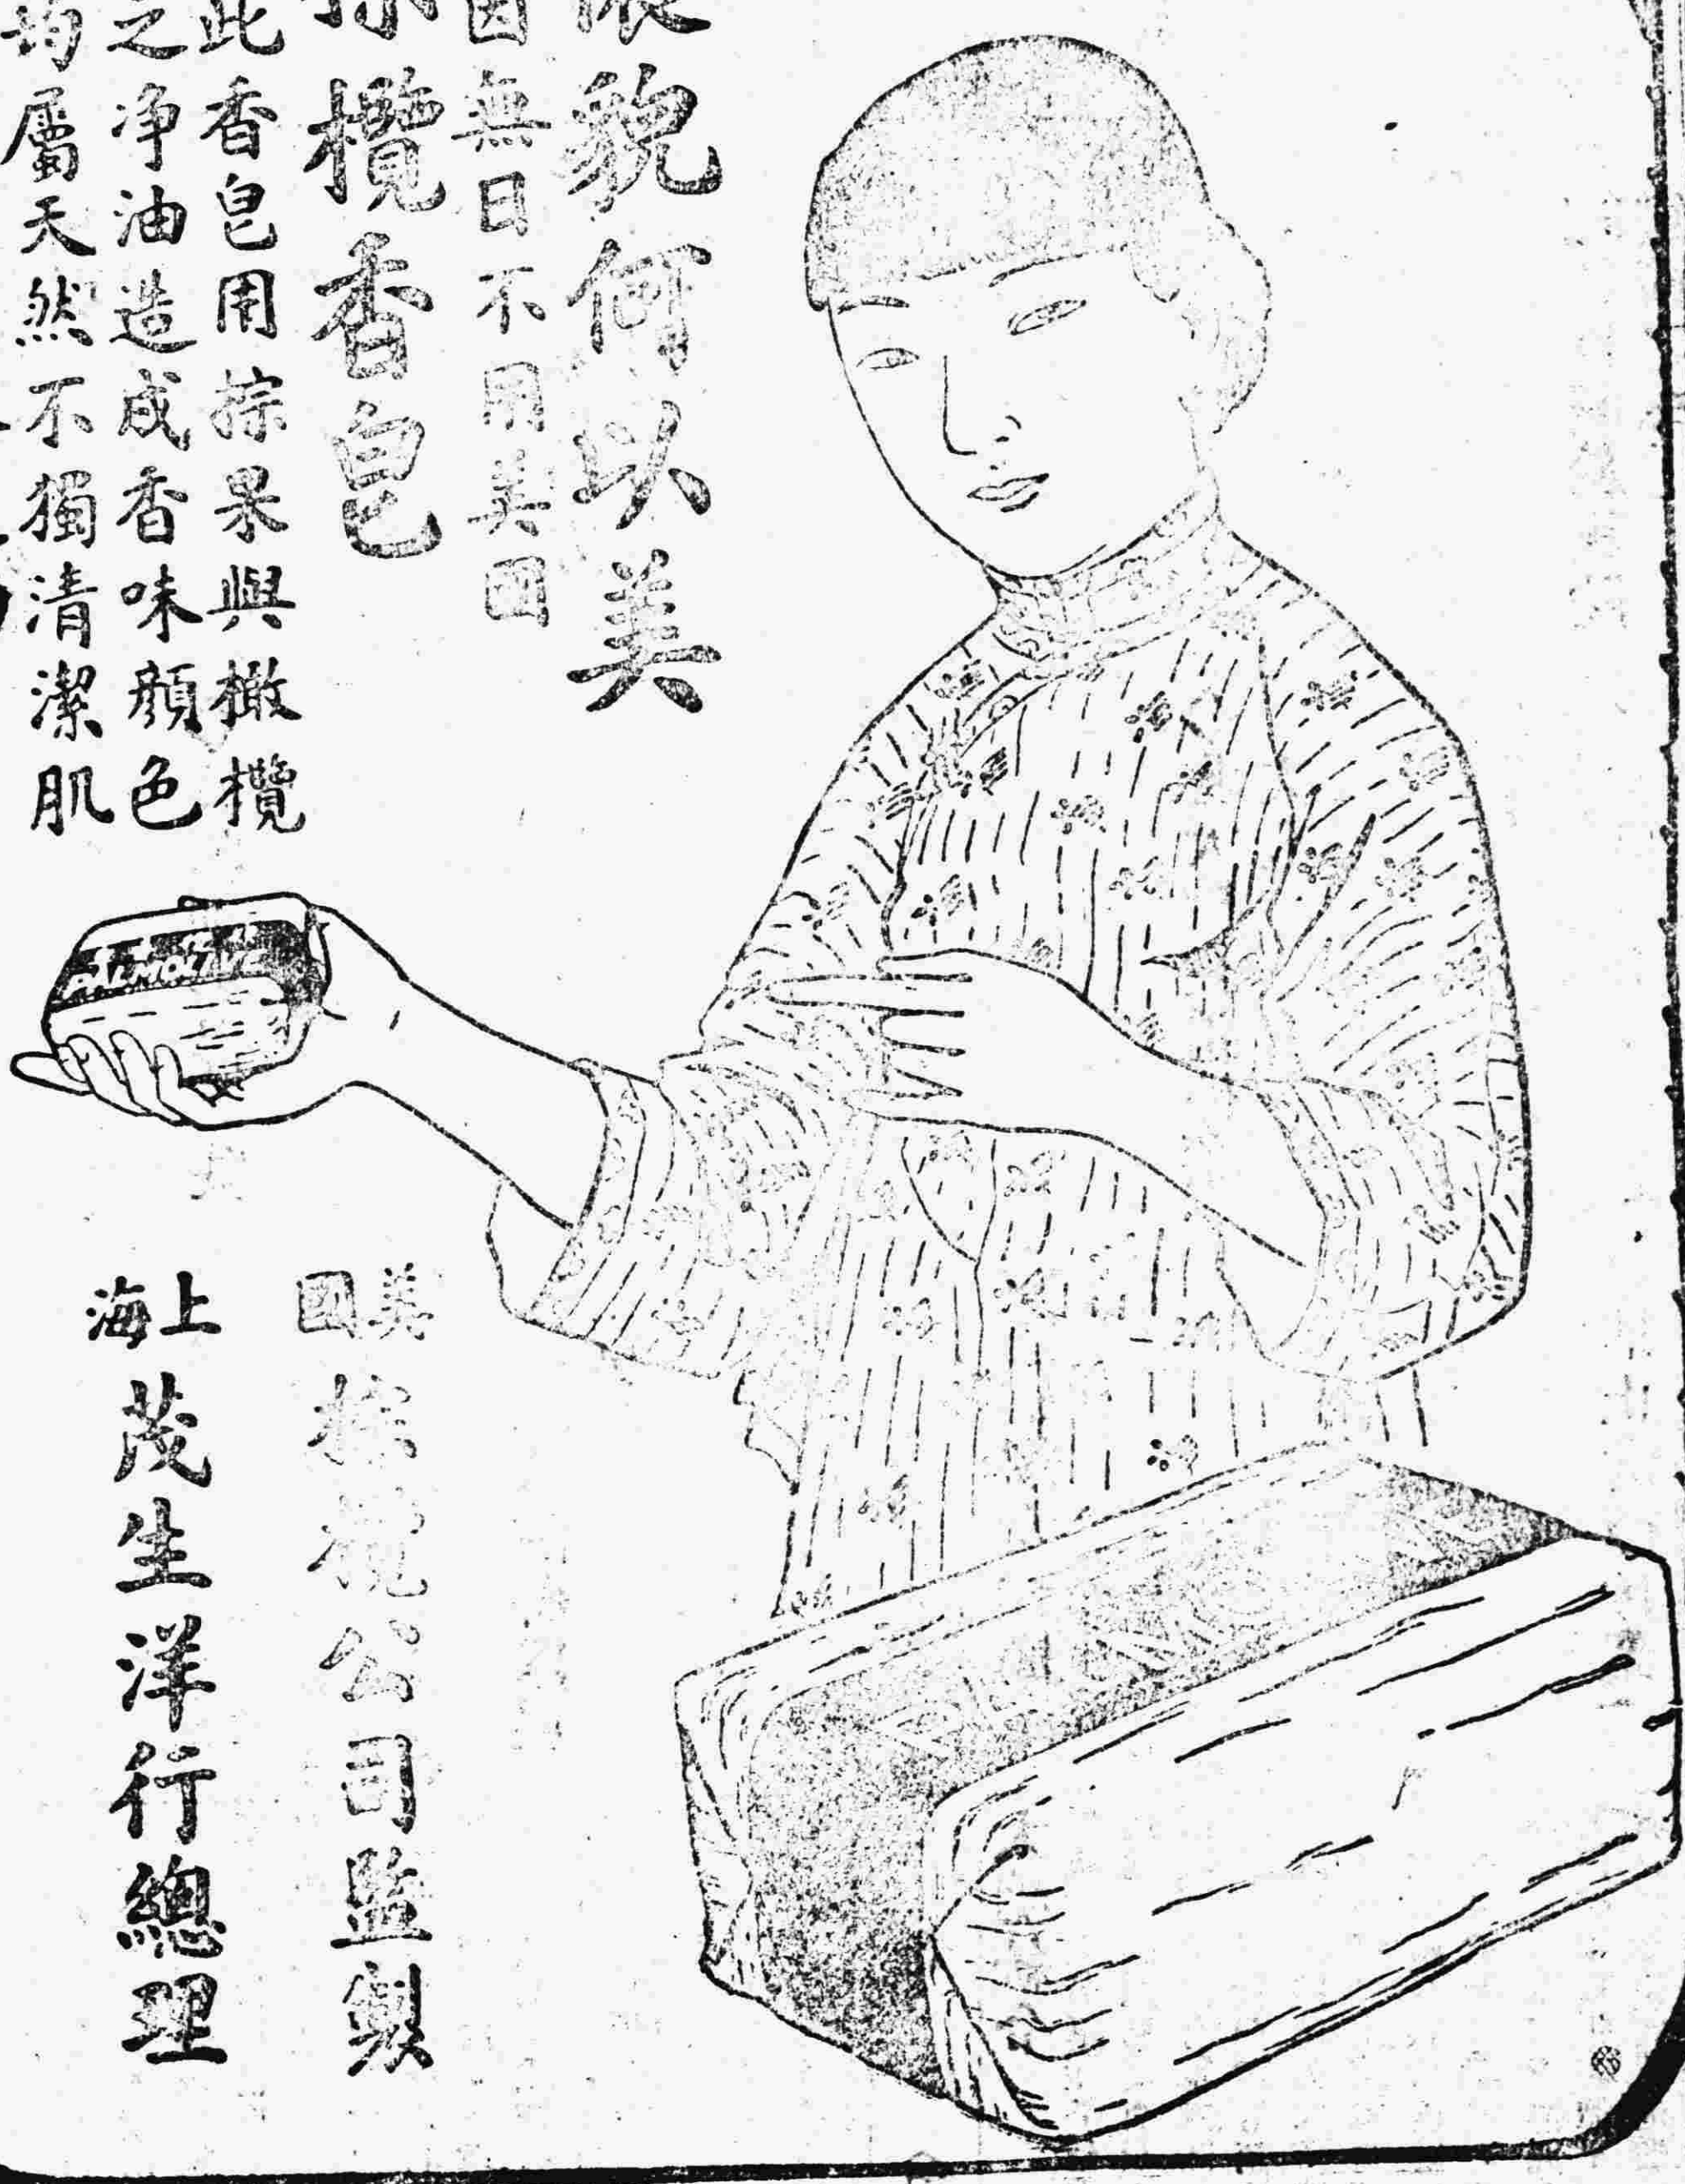 貌何以美
無日不用美國
欖香皂
此香皂用棕果與橄欖
之净油造成香味顏色
均屬天然不獨清潔肌
PALMOLIVE
美國
棕欖公司監製
上海
茂生洋行總理